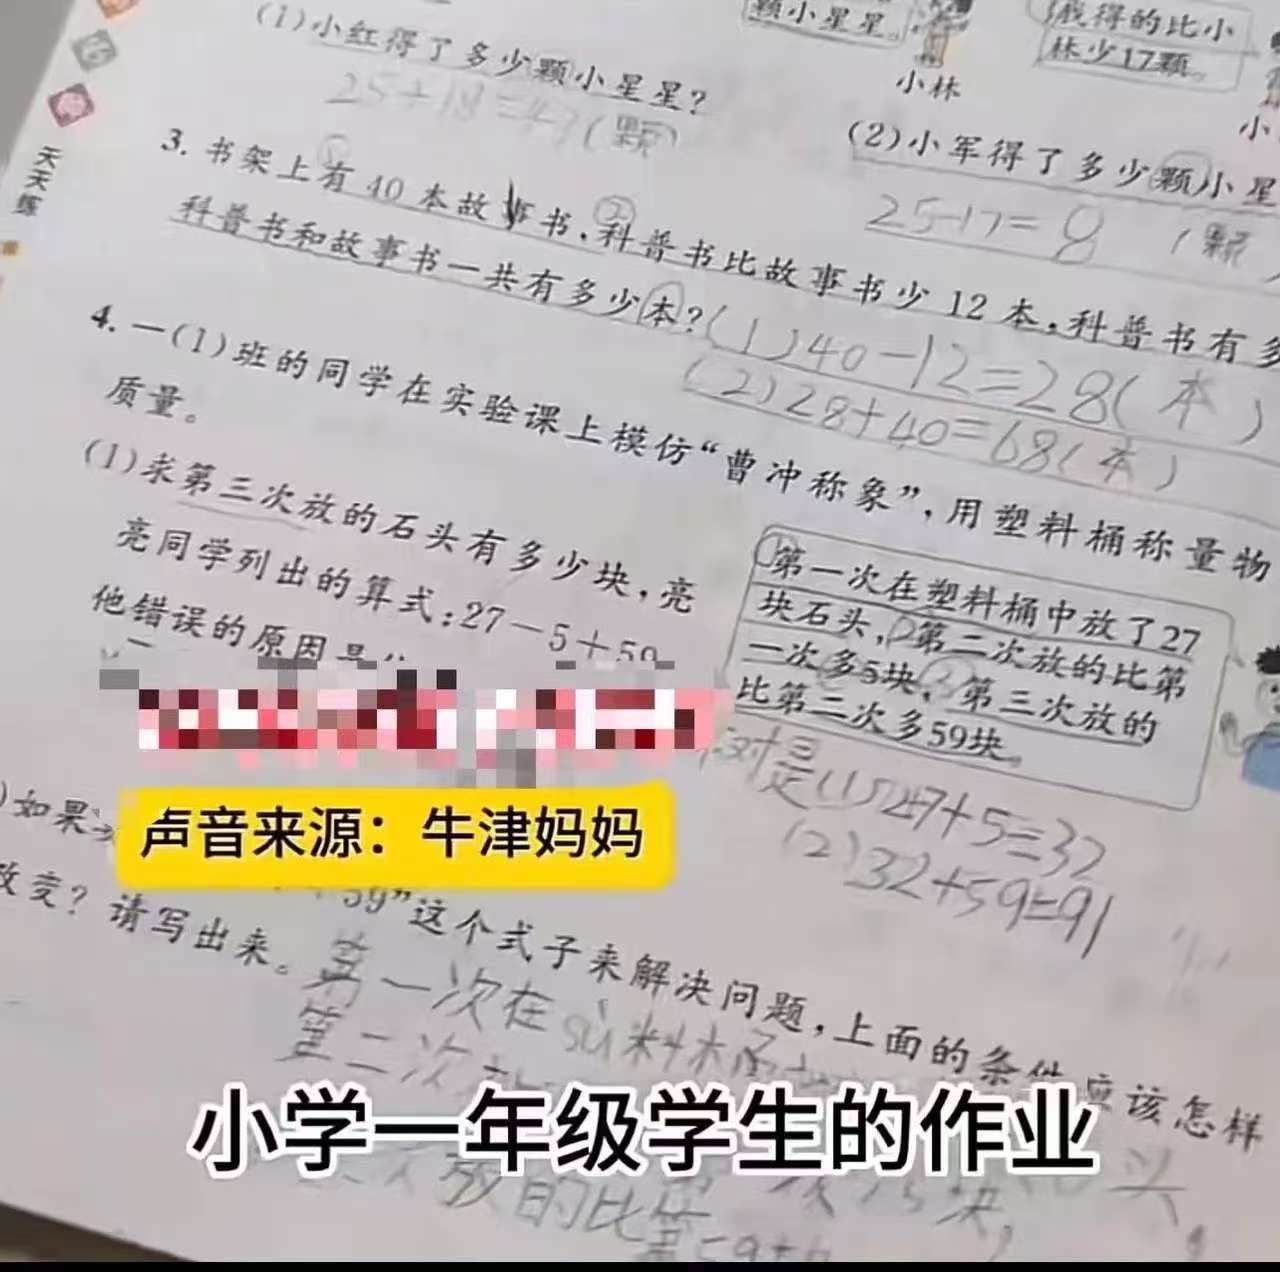 颗小星星。
小林
我得的比小
林少17颗。
小
(1)小红得了多少颗小星星?
25+18=43(颗)
(2)小军得了多少颗小星
25-17=8(颗
天天练
3. 书架上有40本故事书,科普书比故事书少12本,科普书有多
科普书和故事书一共有多少本?
(1)40-12=28(本)
(2)28+40=68(本)
4. 一(1)班的同学在实验课上模仿“曹冲称象”,用塑料桶称量物
质量。
(1)求第三次放的石头有多少块,亮
亮同学列出的算式:27-5+59
他错误的原因是
①第一次在塑料桶中放了27
块石头,②第二次放的比第
一次多5块,③第三次放的
比第二次多59块。
对是(1)27+5=32
(2)32+59=91
声音来源:牛津妈妈
)如果
59”这个式子来解决问题,上面的条件应该怎样
改变?请写出来。
第一次在sù料桶
第二次
小学一年级学生的作业
放的比第